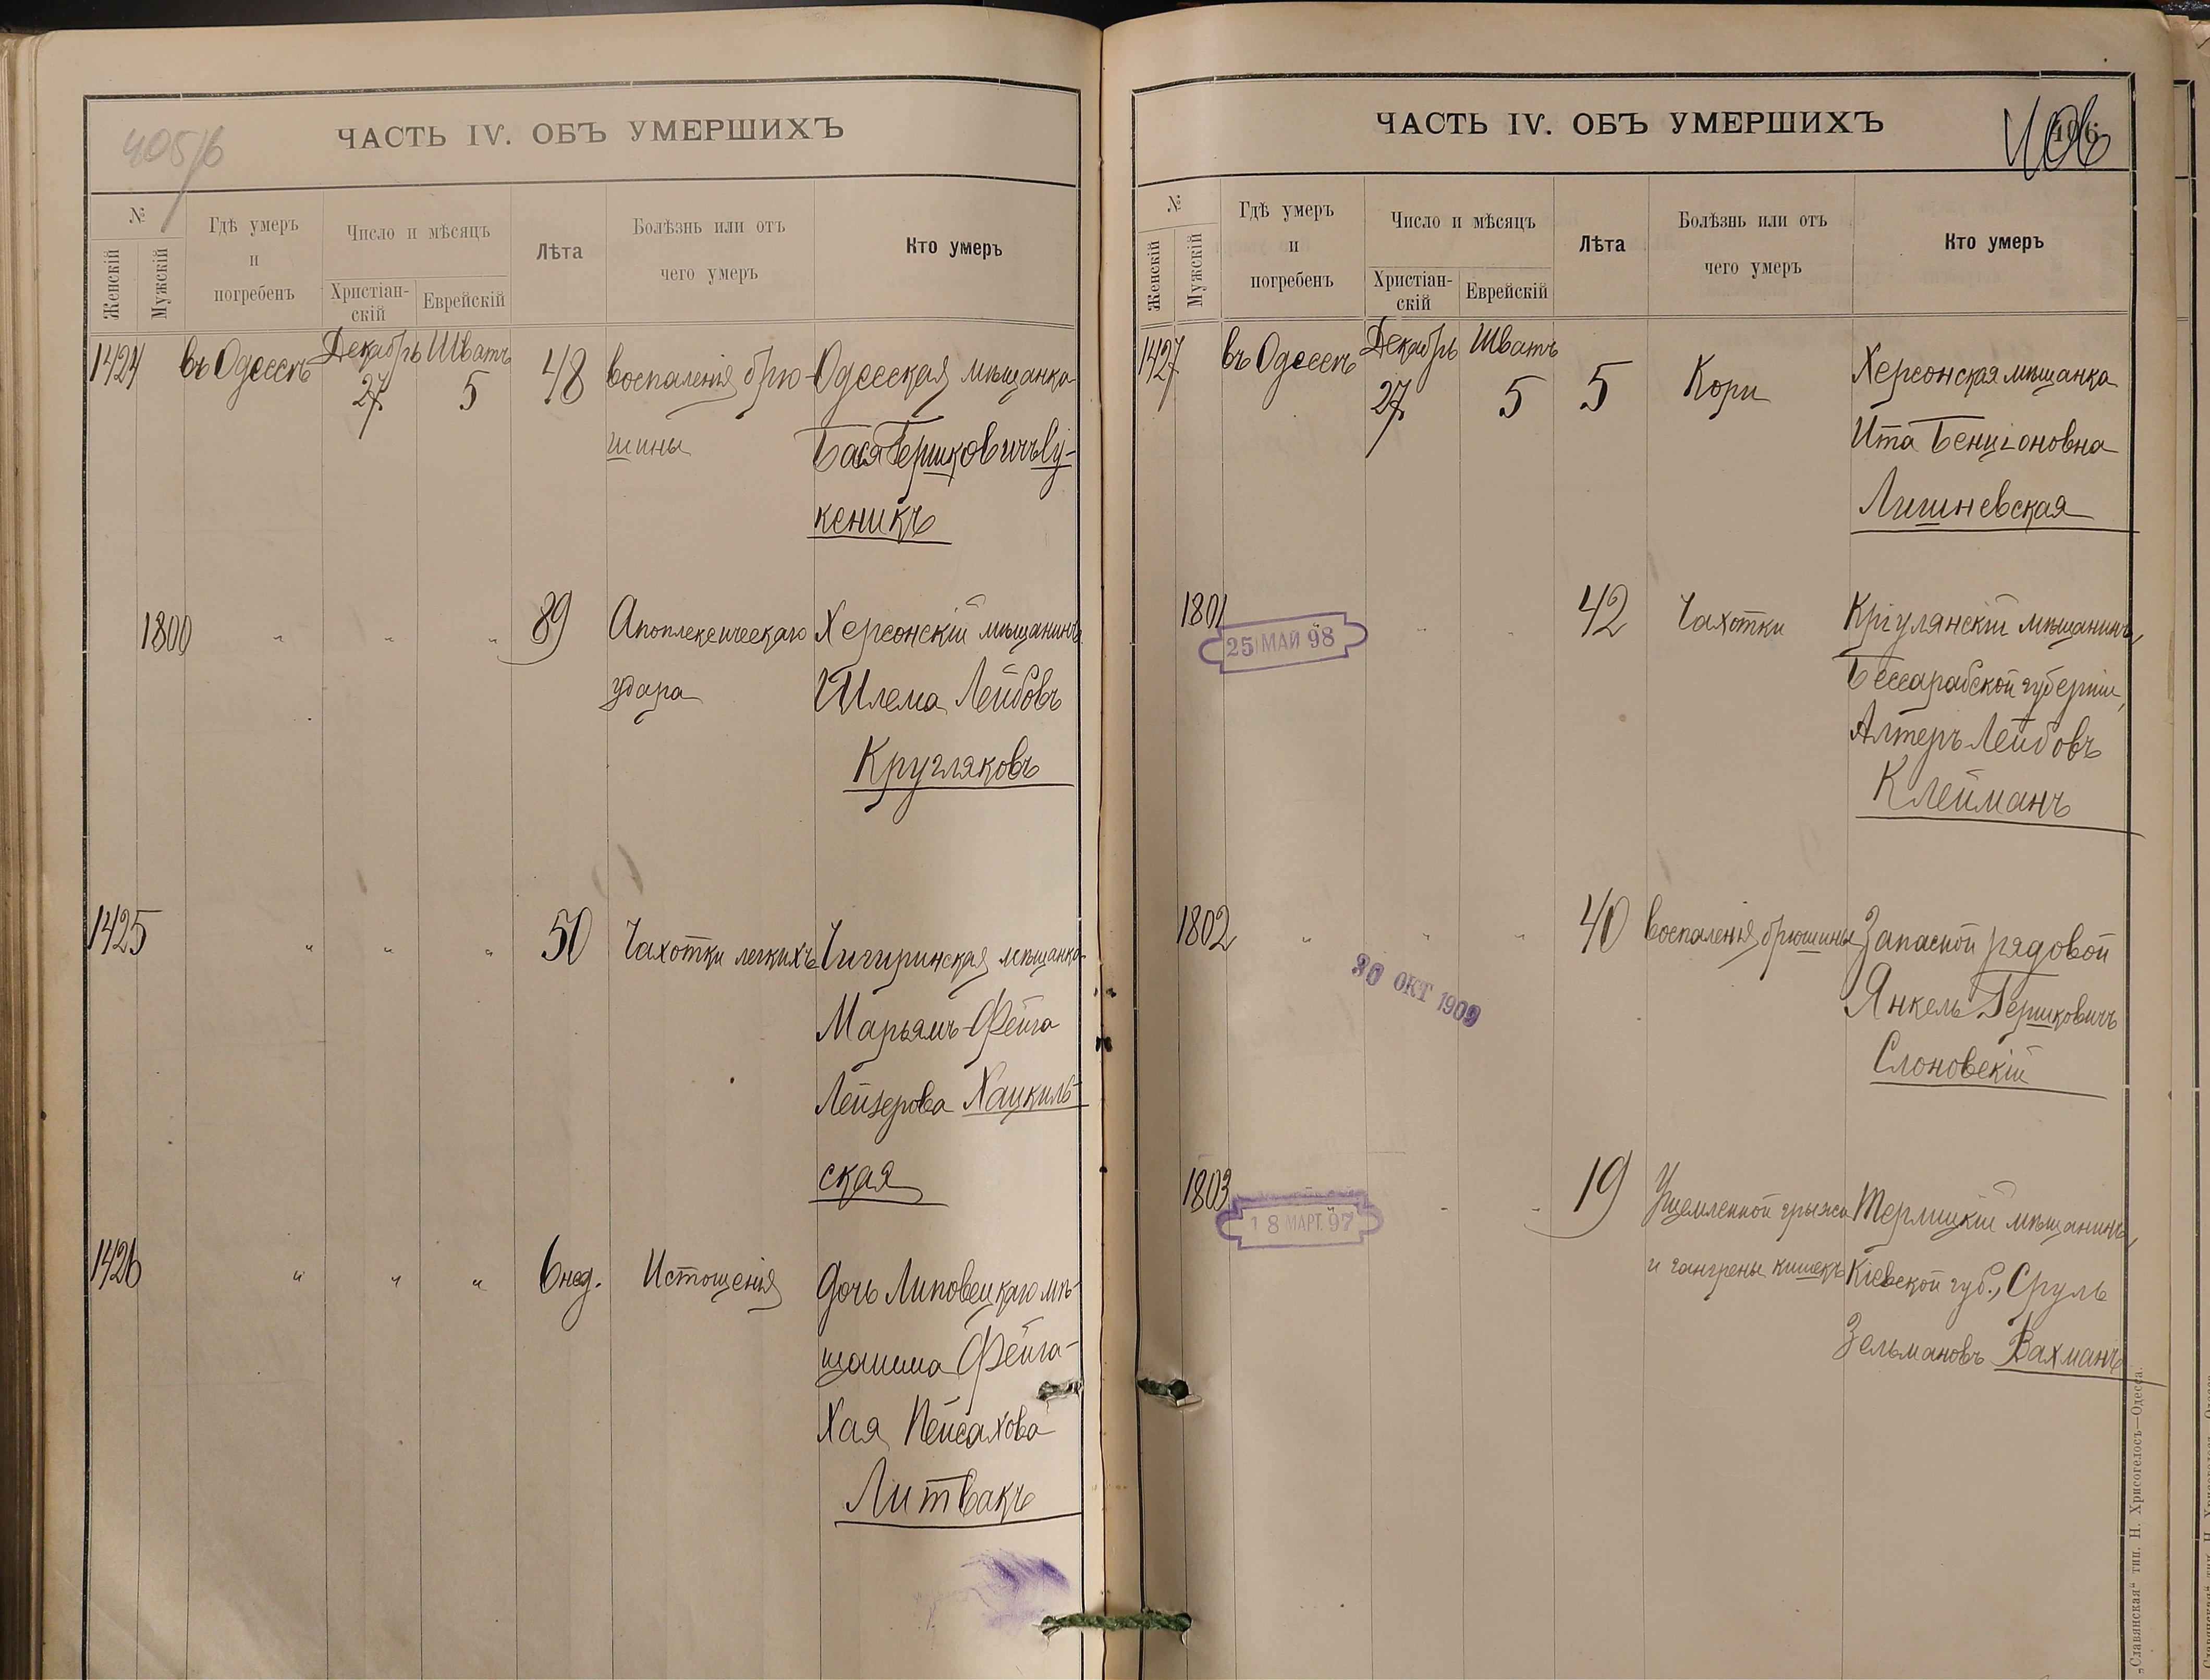 405/б
ЧАСТЬ IV. ОБЪ УМЕРШИХЪ
№
Женскій
Мужскій
Гдѣ умеръ
и
погребенъ
Число и мѣсяцъ
Христіан-
скій
Еврейскій
Лѣта
Болѣзнь или отъ
чего умеръ
Кто умеръ
1424 въ Одессѣ Декабрь 27 Шватъ 5 48 воспаленія брю- Одесская мѣщанка
шины Бася Гершковичъ Лу-
кеникъ
1800 " " " 89 Апоплексическаго Херсонскій мѣщанинъ
удара Шлема Лейбовъ
Кругляковъ
1425 " " " 50 Чахотки легкихъ Чигиринская мѣщанка
Марьямъ-Фейга
Лейзерова Хацкиль-
ская
1426 " " " 6 нед. Истощенія Дочь Липовецкаго мѣ-
щанина Фейга-
Хая Пейсахова
Литвакъ
ЧАСТЬ IV. ОБЪ УМЕРШИХЪ
406
№
Женскій
Мужскій
Гдѣ умеръ
и
погребенъ
Число и мѣсяцъ
Христіан-
скій
Еврейскій
Лѣта
Болѣзнь или отъ
чего умеръ
Кто умеръ
1427 въ Одессѣ Декабрь 27 Шватъ 5 5 Кори Херсонская мѣщанка
Ита Бенціоновна
Лишневская
1801 " " " 42 Чахотки Кріулянскій мѣщанинъ,
25 МАЙ 98
Бессарабской губерніи,
Алтеръ Лейбовъ
Клейманъ
1802 " " " 40 воспаленія брюшины Запасной рядовой
30 ОКТ 1909
Янкель Гершковичъ
Слоновскій
1803 " " " 19 Ущемленной грыжи Терлицкій мѣщанинъ,
18 МАРТ. 97
и гангрены кишекъ Кіевской губ., Сруль
Зельмановъ Вахманъ
„Славянская“ тип. Н. Хрисогелосъ—Одесса.